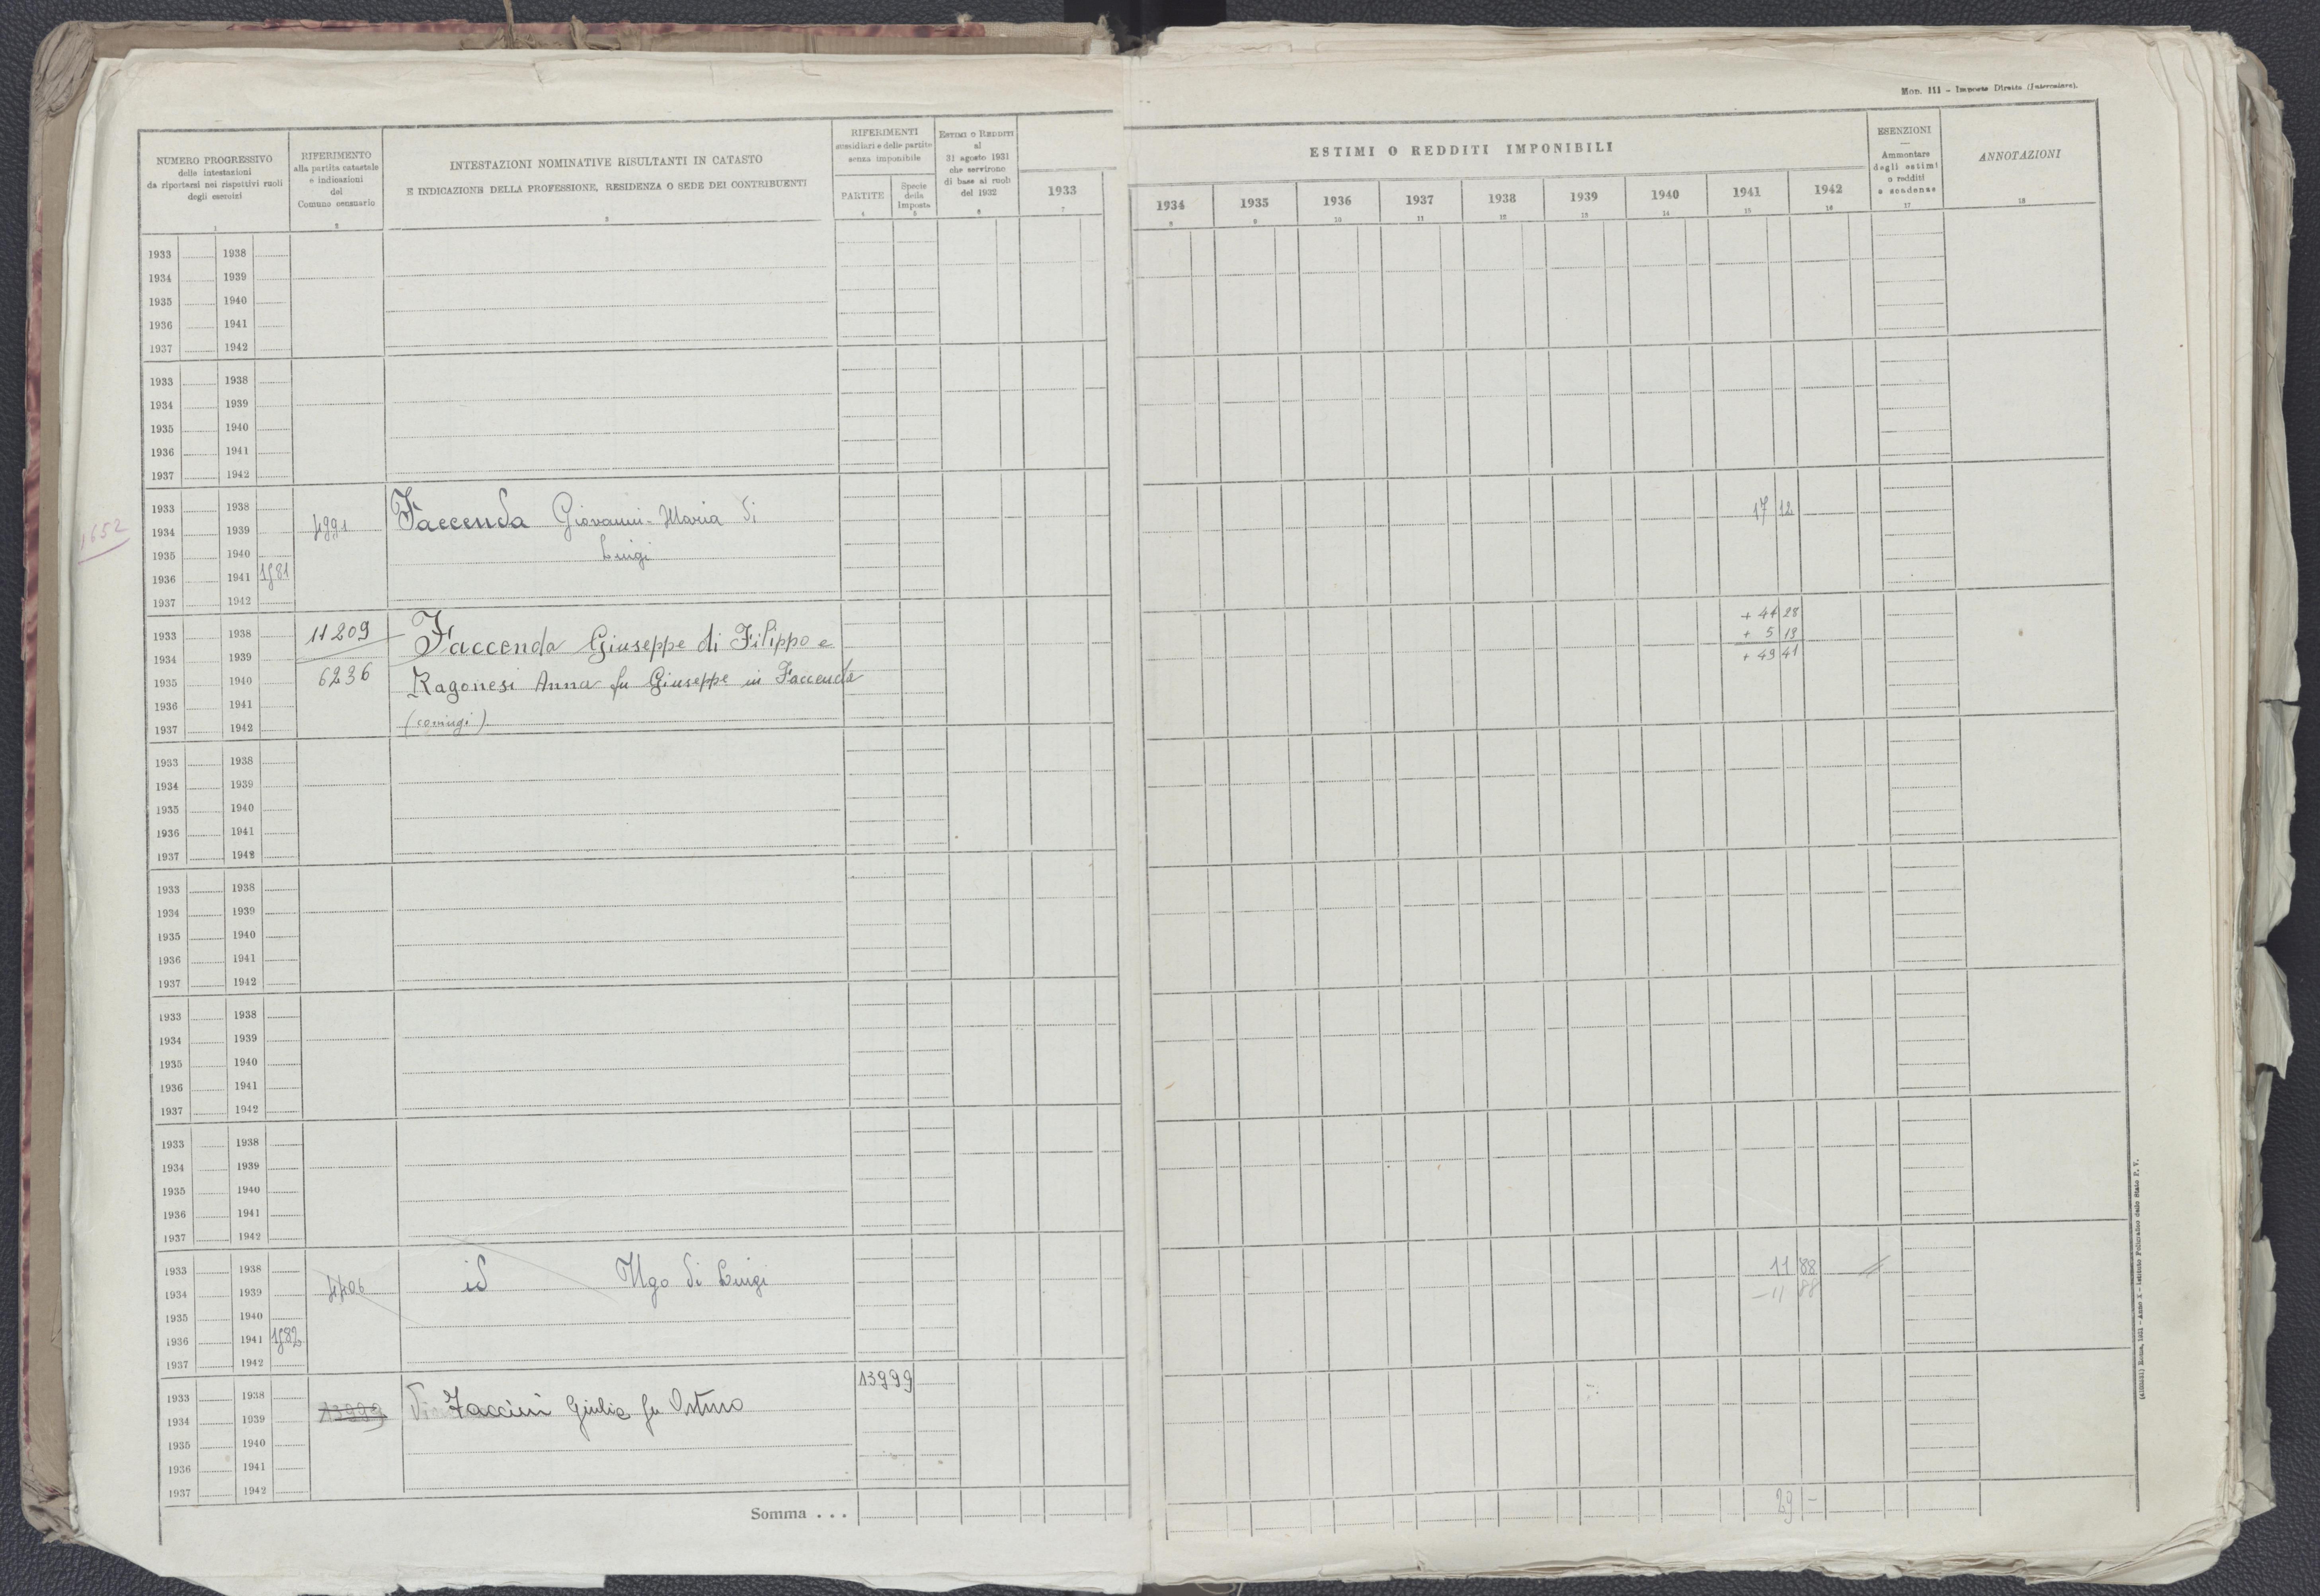 Mod. 111 - Imposte Dirette (Intercalare).
NUMERO PROGRESSIVO
delle intestazioni
da riportarsi nei rispettivi ruoli
degli esercizi
1
RIFERIMENTO
alla partita catastale
e indicazioni
del
Comune censuario
2
INTESTAZIONI NOMINATIVE RISULTANTI IN CATASTO
E INDICAZIONE DELLA PROFESSIONE, RESIDENZA O SEDE DEI CONTRIBUENTI
3
RIFERIMENTI
sussidiari e delle partite
senza imponibile
PARTITE
4
Specie
della
Imposta
5
ESTIMI O REDDITI
al
31 agosto 1931
che servirono
di base ai ruoli
del 1932
6
ESTIMI O REDDITI IMPONIBILI
1933
7
1934
8
1935
9
1936
10
1937
11
1938
12
1939
13
1940
14
1941
15
1942
16
ESENZIONI
Ammontare
degli estimi
o redditi
e scadenze
17
ANNOTAZIONI
18
1933 1938
1934 1939
1935 1940
1936 1941
1937 1942
1933 1938
1934 1939
1935 1940
1936 1941
1937 1942
1652
1933 1938
Faccenda Giovanni-Maria di
17 12
1934 1939
1935 1940
Luigi
1936 1941
1937 1942
1933 1938
11209
Faccenda Giuseppe di Filippo e
+ 44 28
+ 5 13
+ 49 41
1934 1939
1935 1940
6236
Ragonesi Anna fu Giuseppe in Faccenda
1936 1941
(coniugi)
1937 1942
1933 1938
1934 1939
1935 1940
1936 1941
1937 1942
1933 1938
1934 1939
1935 1940
1936 1941
1937 1942
1933 1938
1934 1939
1935 1940
1936 1941
1937 1942
1933 1938
1934 1939
1935 1940
1936 1941
1937 1942
1933 1938
id Ugo di Luigi
11 88
1934 1939
- 11 88
1935 1940
1936 1941
1937 1942
1933 1938
13999
1934 1939
13999
Faccini Giulia fu Arturo
1935 1940
1936 1941
1937 1942
Somma . . .
29 -